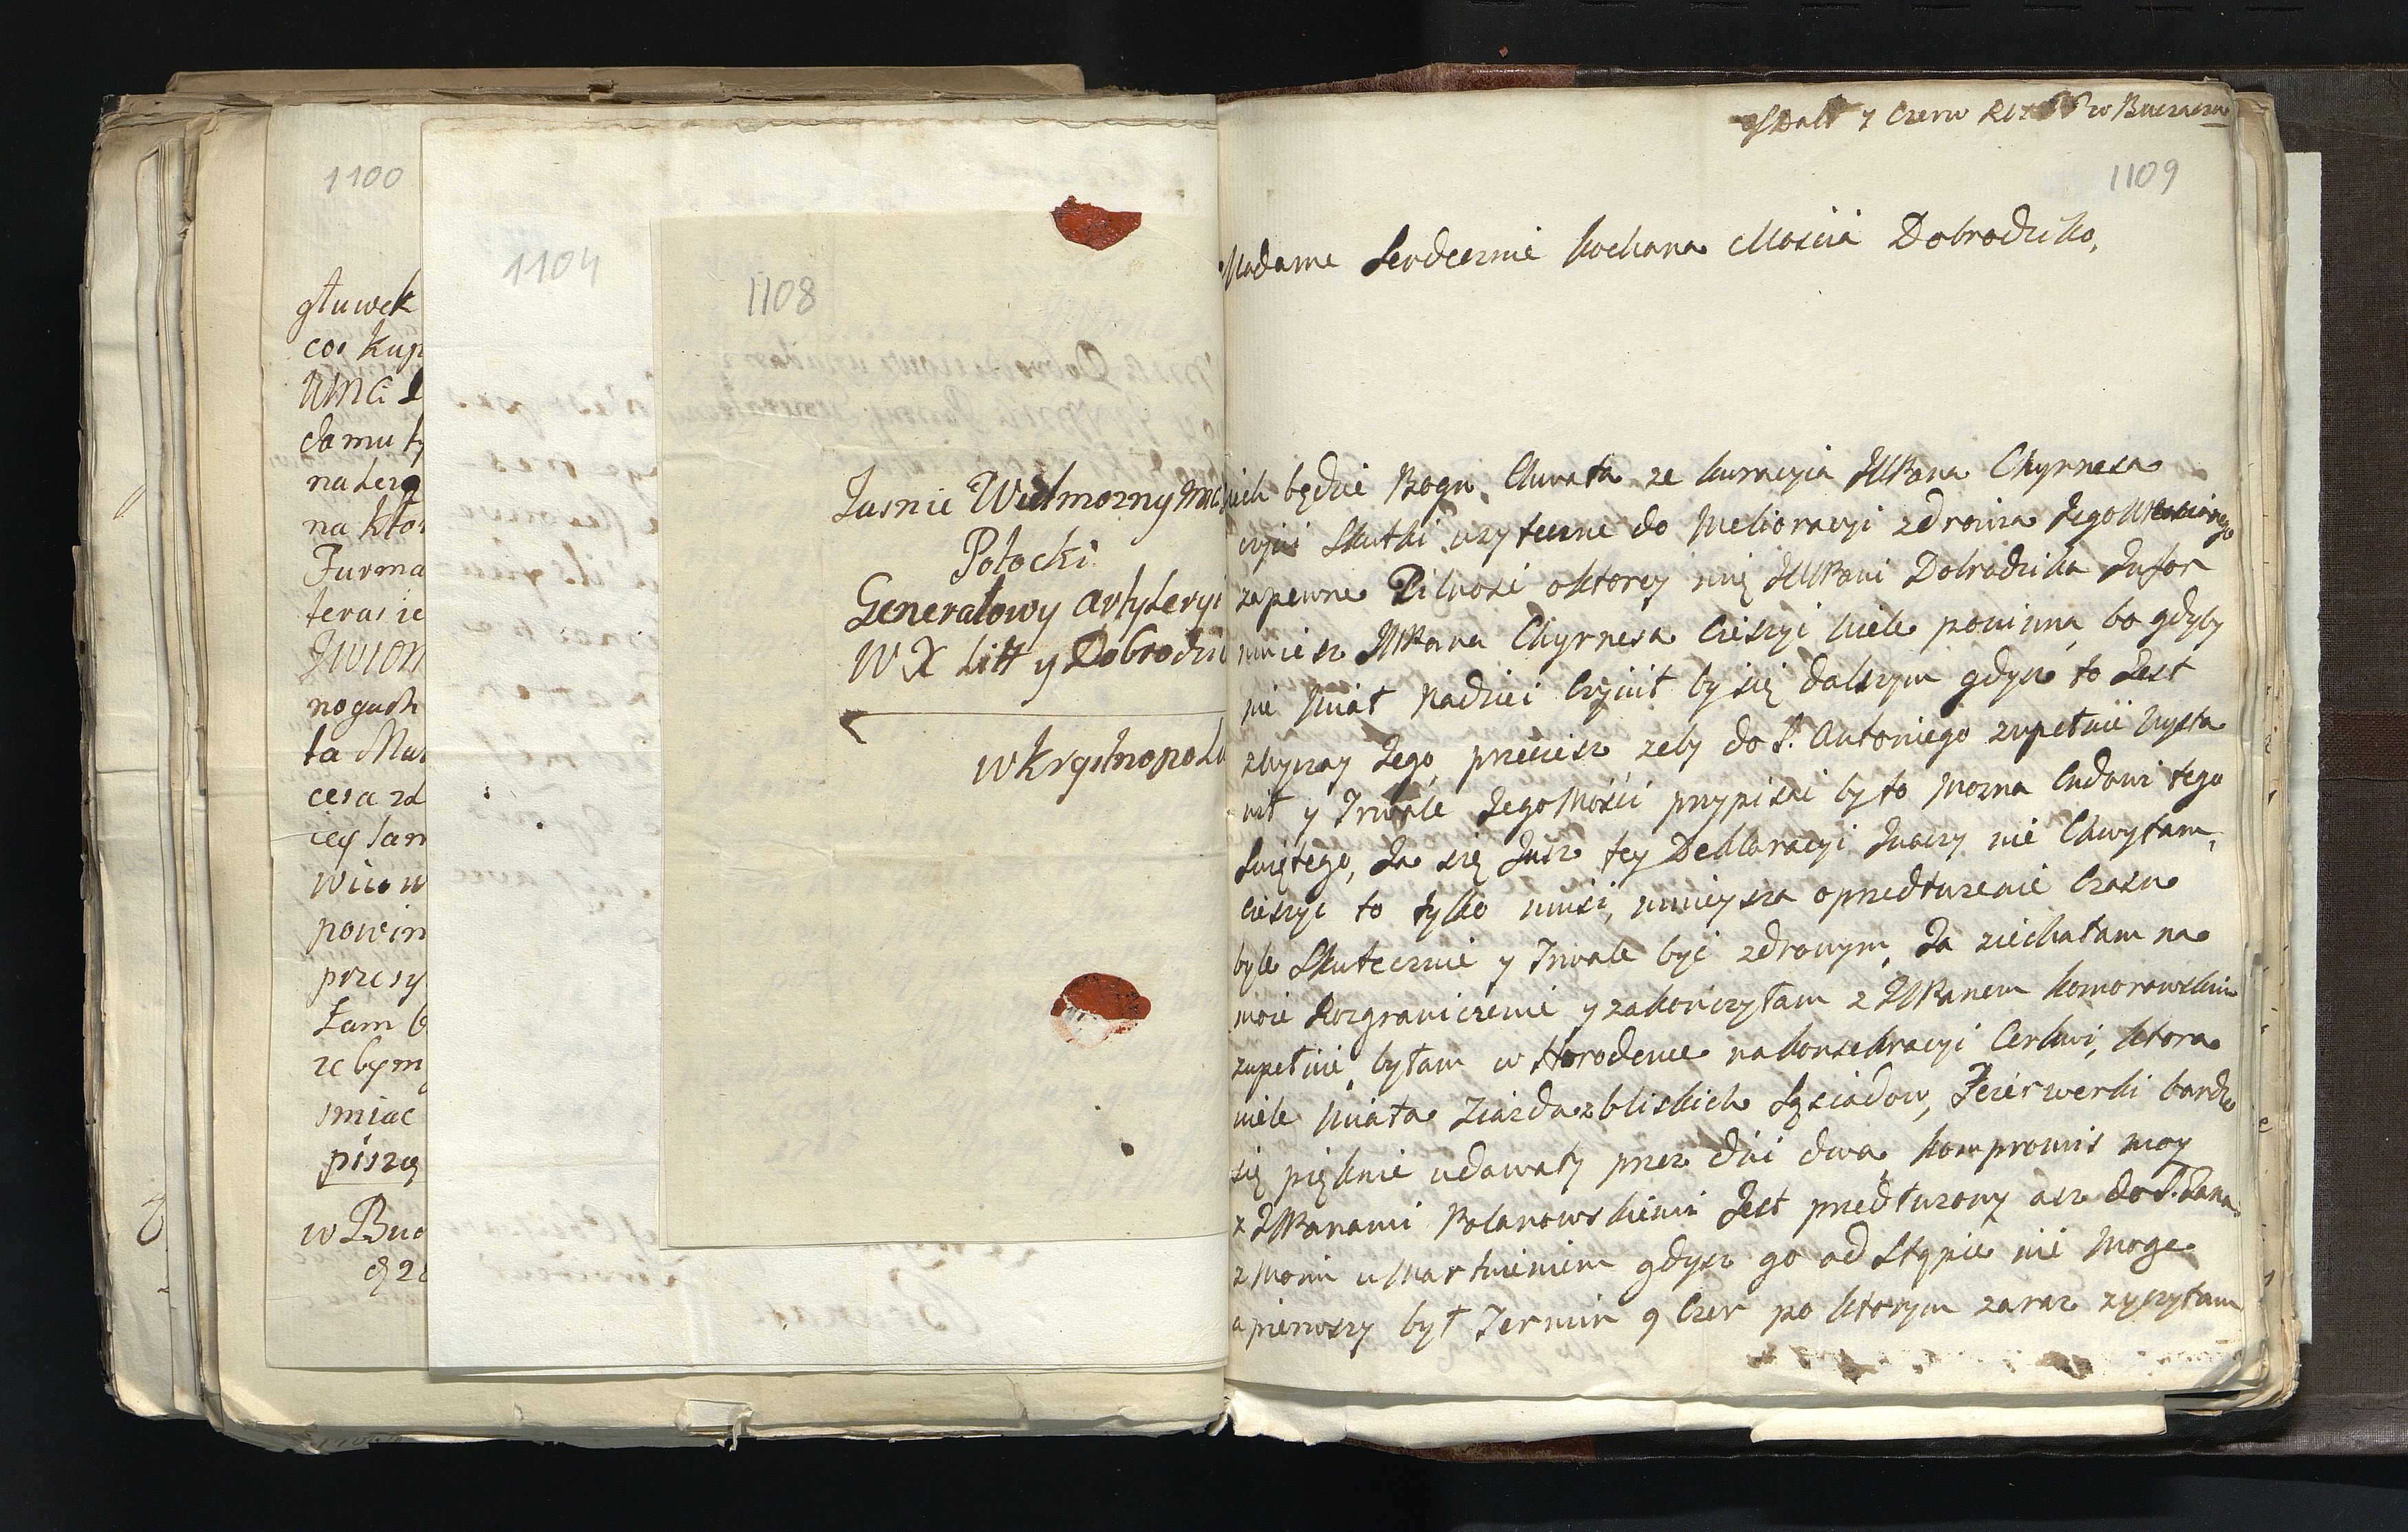 1100
głuwek
co kup
UMCi
damu
na
na kto
Furma
teras ie
noguth
ta Mar
cesa zd
iey sam
powin
przesy
żam
zebym
smiac
piszą
w Buc
1104
1108
Jasnie Wielmozny
Potocki
Generałowy Artyleryi
W X Litt y Dobrodzi
w Krystnopolu
7 Czerw w Buczaczu
1109
Madame Serdecznie kochana Mościa Dobrodziko,
niech będzie Bogu Chwała ze kuracyia JMPana Chyrnesa
czyni Skutki uzyteczne do Melioracyi zdrowia Jego
zapewne Pilność oktorey mię JMPani Dobrodzika Infor
muiesz JMPana Chyrnesa Cieszyć wiele powinna, bo gdyby
nie miał Nadziei Czynił by się dalszym gdysz to Jest
zwyczay Jego, przecisz zeby do S. Antoniego zupełnie wysta
wił y Trwale JegoMości przypisać było mozna Cudowi tego
Swiętego, Ja się Jusz tey Deklaracyi Inaczy nie Chwytam,
Cieszyć to tylko musi, mnieysza o przedłuzenie Czasu
byle Skutecznie y Trwale być zdrowym, Ja ziechałam na
moie Rozgraniczenie y zakończyłam z JMPanem Komorowskim
zupełnie, byłam w Horodence na konsekracyi Cerkwi, ktora
wiele miała Ziazdu z bliskich Sąsiadow, Feierwerki bardzo
się pięknie udawały przez dni dwa, kompromis moy
z JMPanami Polanowskiemi Jest przedłuzony asz do S. Jana
z moim umartwieniem gdysz go od Stąpić nie Moge
a pierwszy był Termin 9 Czer po ktorym zaraz zyczyłam